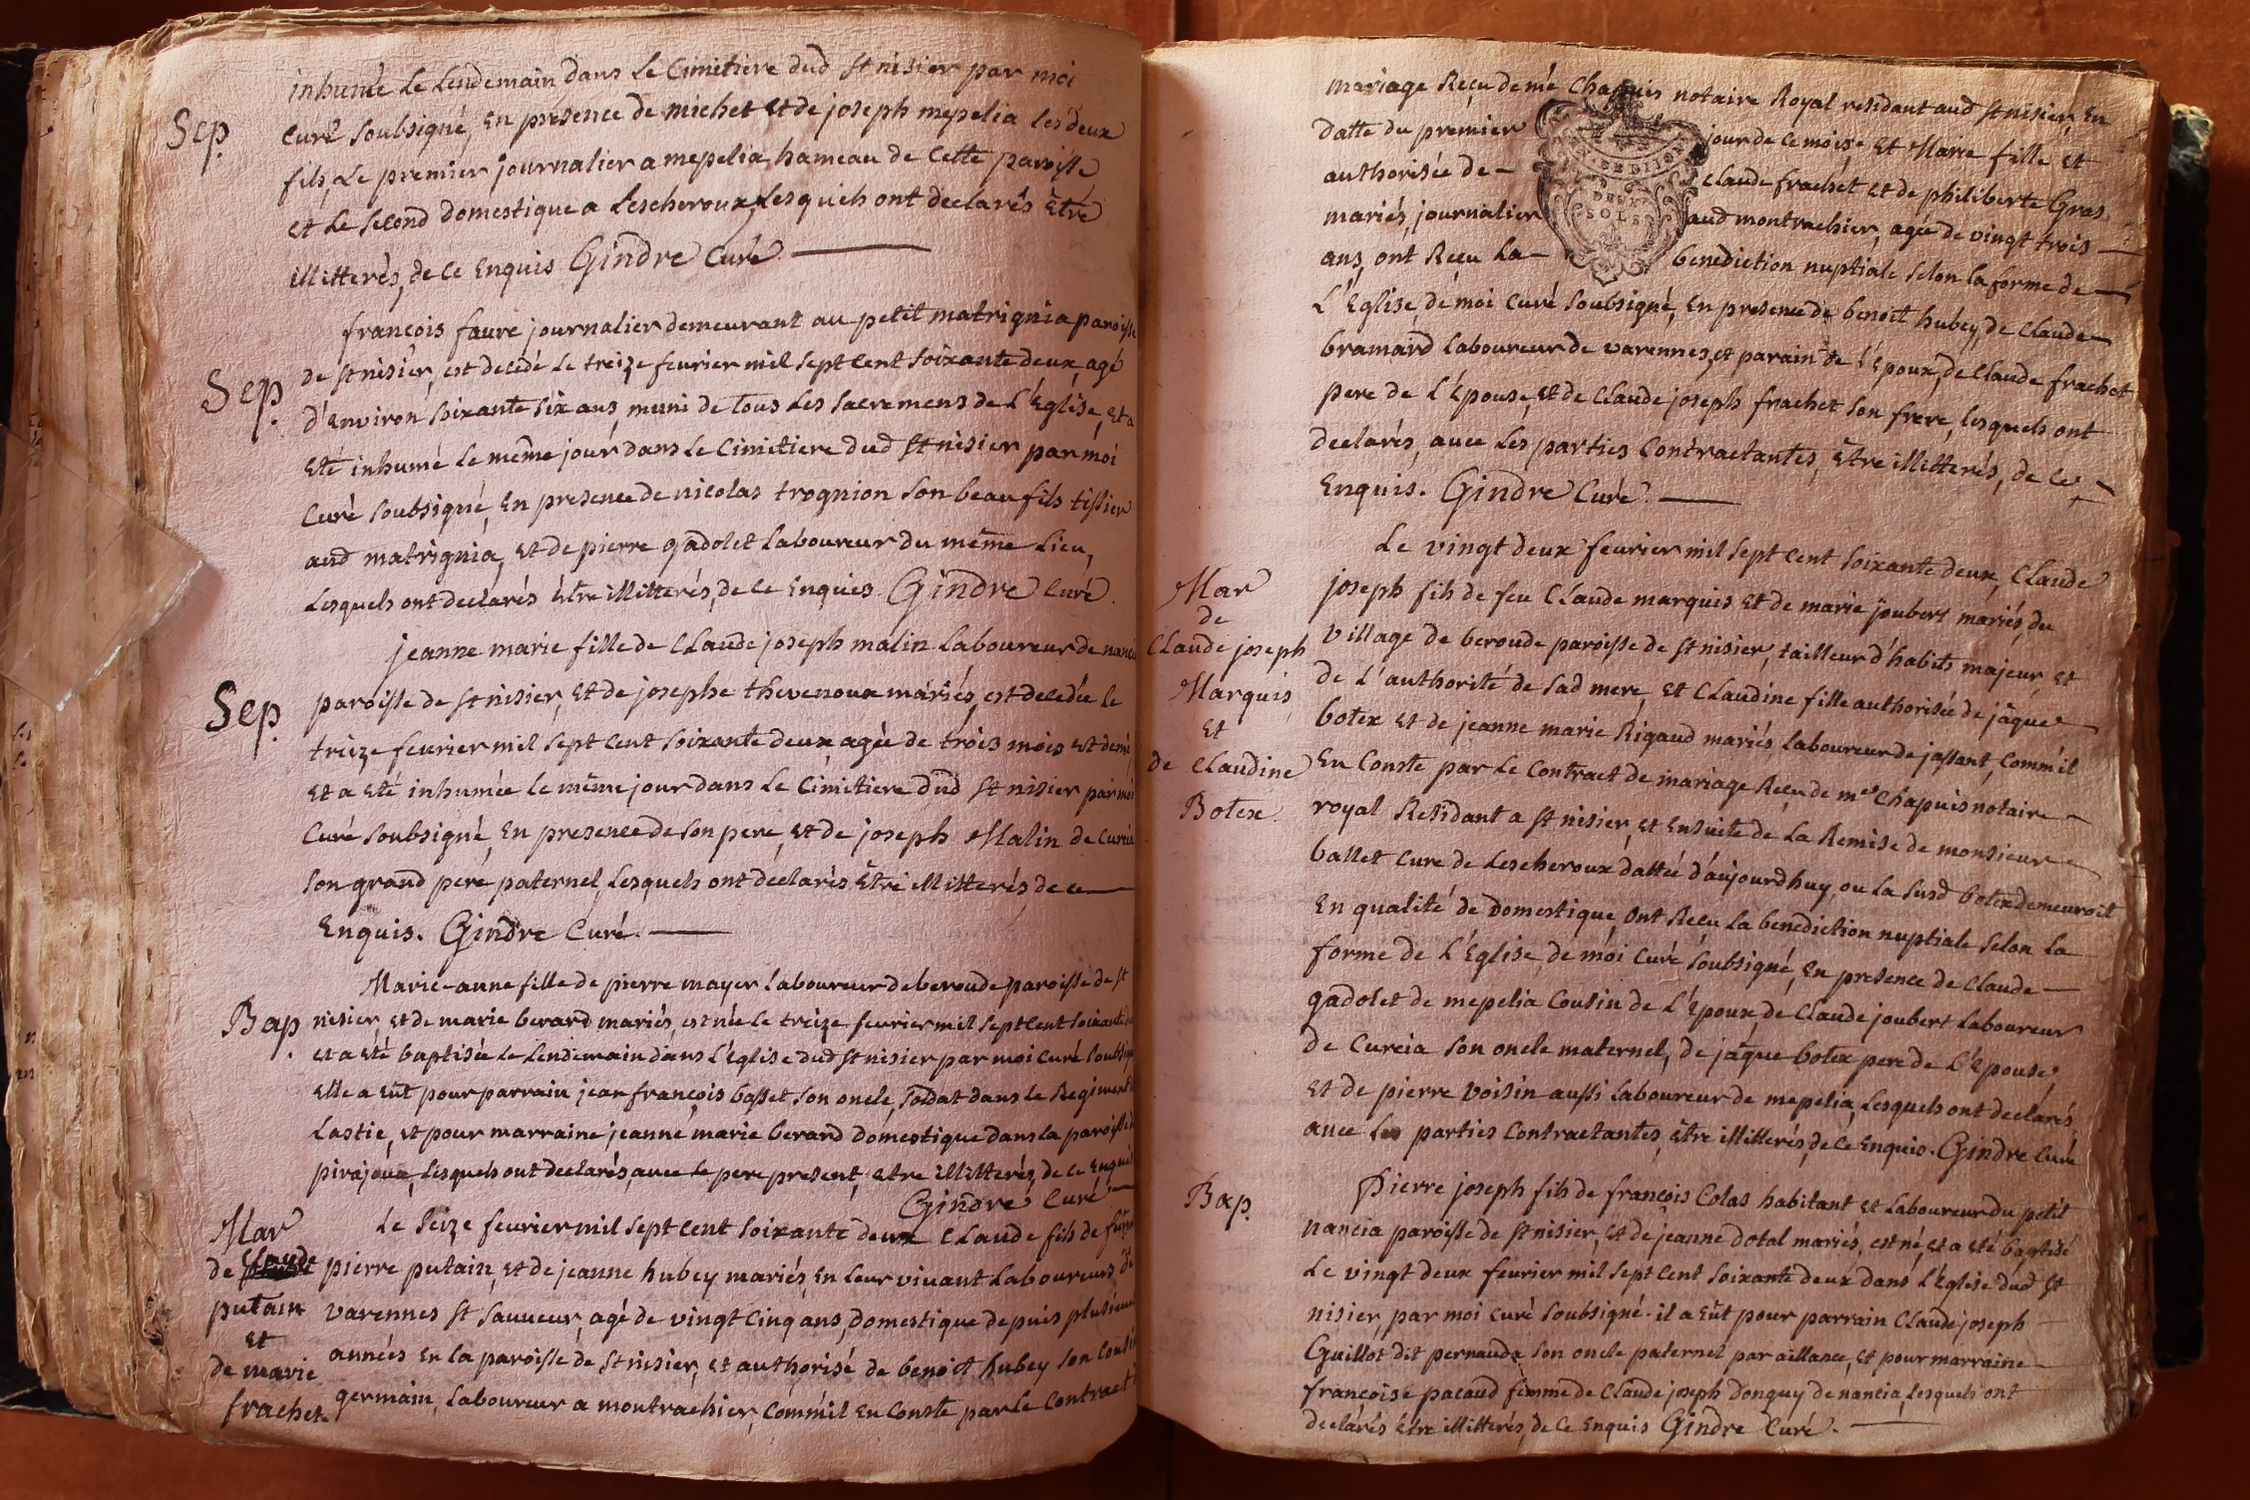 inhumé Le Lendemain dans Le Cimitiere dud St nisier par moi
Sep. Curé soubsigné, En presence de michel Et de joseph mepelia les deux
fils, Le premier journalier a mepelia, hameau de Cette paroisse
Et Le second domestique a Lescheroux, Lesquels ont declarés Etre
illitterés, de ce Enquis Gindre Curé
françois faure journalier demeurant au petit matrignia paroisse
Sep. de St nisier, est decedé Le treize feurier mil sept cent soixante deux, agé
d'Environ soixante six ans, muni de tous Les sacremens de L'Eglise, Et a
Eté inhumé le même jour dans Le Cimitiere dud St nisier par moi
Curé soubsigné, En presence de nicolas trognion son beau fils tissier
aud matrignia, Et de pierre gadolet Laboureur du même Lieu,
Lesquels ont declarés Etre illitterés, de ce Enquis Gindre Curé.
jeanne marie fille de CLaude joseph malin Laboureur de nancia
Sep. paroisse de St nisier, Et de josephe thevenoux mariés, est decedée le
treize feurier mil sept cent soixante deux agée de trois mois et demi,
Et a Eté inhumée le même jour dans Le Cimitiere dud St nisier par moi
Curé soubsigné, En presence de son pere, Et de joseph Malin de Curcia
son grand pere paternel, Lesquels ont declarés Etre illitterés, de ce
Enquis. Gindre Curé.
Marie-anne fille de pierre mayer Laboureur de beroude paroisse de St
Bap. nisier, Et de marie berard mariés, est née le treize feurier mil sept cent soixante
et a Eté baptisée Le Lendemain dans L'Eglise dud St nisier par moi Curé soubsigné
Elle a Eüt pour parrain jean françois basset son oncle, soldat dans le Regiment
Lastic, Et pour marraine jeanne marie berard domestique dans la paroisse
pirajoux, Lesquels ont declarés, avec Le pere present, Etre illitterés, de ce Enquis
Gindre Curé
Mar
de putain
et
de marie
frachet
Le seize feurier mil sept cent soixante deux CLaude fils de
pierre putain, Et de jeanne hubey mariés, En Leur vivant Laboureurs de
varennes St sauueur, agé de vingt Cinq ans, domestique depuis plusieurs
années En la paroisse de St nisier, Et authorisé de benoit hubey son Cousin
germain, Laboureur a montrachier, Comm'il En Conste par Le Contract
mariage Reçu de mé Chapuis notaire Royal residant aud St nisier, En
datte du premier jour de ce mois, Et Marie fille Et
authorisée de CLaude frachet Et de philiberte Gras
mariés, journalier aud montrachier, agée de vingt trois
ans, ont Reçu La benediction nuptiale selon la forme de
L'Eglise, de moi Curé soubsigné, En presence de benoit hubey, de CLaude
bramard Laboureur de varennes, et parain de l'Epoux, de CLaude frachet
pere de L'Epouse, Et de CLaude joseph frachet son frere, Lesquels ont
declarés, avec Les parties Contractantes, Etre illitterés, de ce
Enquis. Gindre Curé.
Mar
de
CLaude joseph
Marquis
Et
de CLaudine
Botex.
Le vingt deux feurier mil sept cent soixante deux, CLaude
joseph fils de feu CLaude marquis Et de marie joubert mariés, du
village de beroude paroisse de St nisier, tailleur d'habits majeur, Et
de L'authorité de sad mere, Et CLaudine fille authorisée de jâque
botex Et de jeanne marie Rigaud mariés Laboureur de jassant, Comm'il
En Conste par Le Contract de mariage Reçu de me Chapuis notaire
royal Residant a St nisier, Et Ensuite de La Remise de monsieur
ballet Cure de Lescheroux dattée d'aujourdhuy, ou La susd botex demeuroit
En qualité de domestique, Ont Reçu La benediction nuptiale selon La
forme de L'Eglise, de moi Curé soubsigné, En presence de CLaude
gadolet de mepelia Cousin de L'Epoux, de CLaude joubert Laboureur
de Curcia son oncle maternel, de jâque botex pere de L'Epouse,
Et de pierre voisin aussi Laboureur de mepelia, Lesquels ont declarés
avec Les parties Contractantes, Etre illitterés, de ce Enquis. Gindre Curé
Bap. Pierre joseph fils de françois Colas habitant et Laboureur du petit
nancia paroisse de St nisier, Et de jeanne dotal mariés, est né, Et a Eté baptisé
Le vingt deux feurier mil sept cent soixante deux dans L'Eglise dud St
nisier par moi Curé soubsigné. il a Eüt pour parrain CLaude joseph
Guillot dit pernaude son oncle paternel par aillance, Et pour marraine
francoise pacaud femme de CLaude joseph donguy de nancia, Lesquels ont
declarés Etre illitterés, de ce Enquis Gindre Curé.
DEUX
SOLS